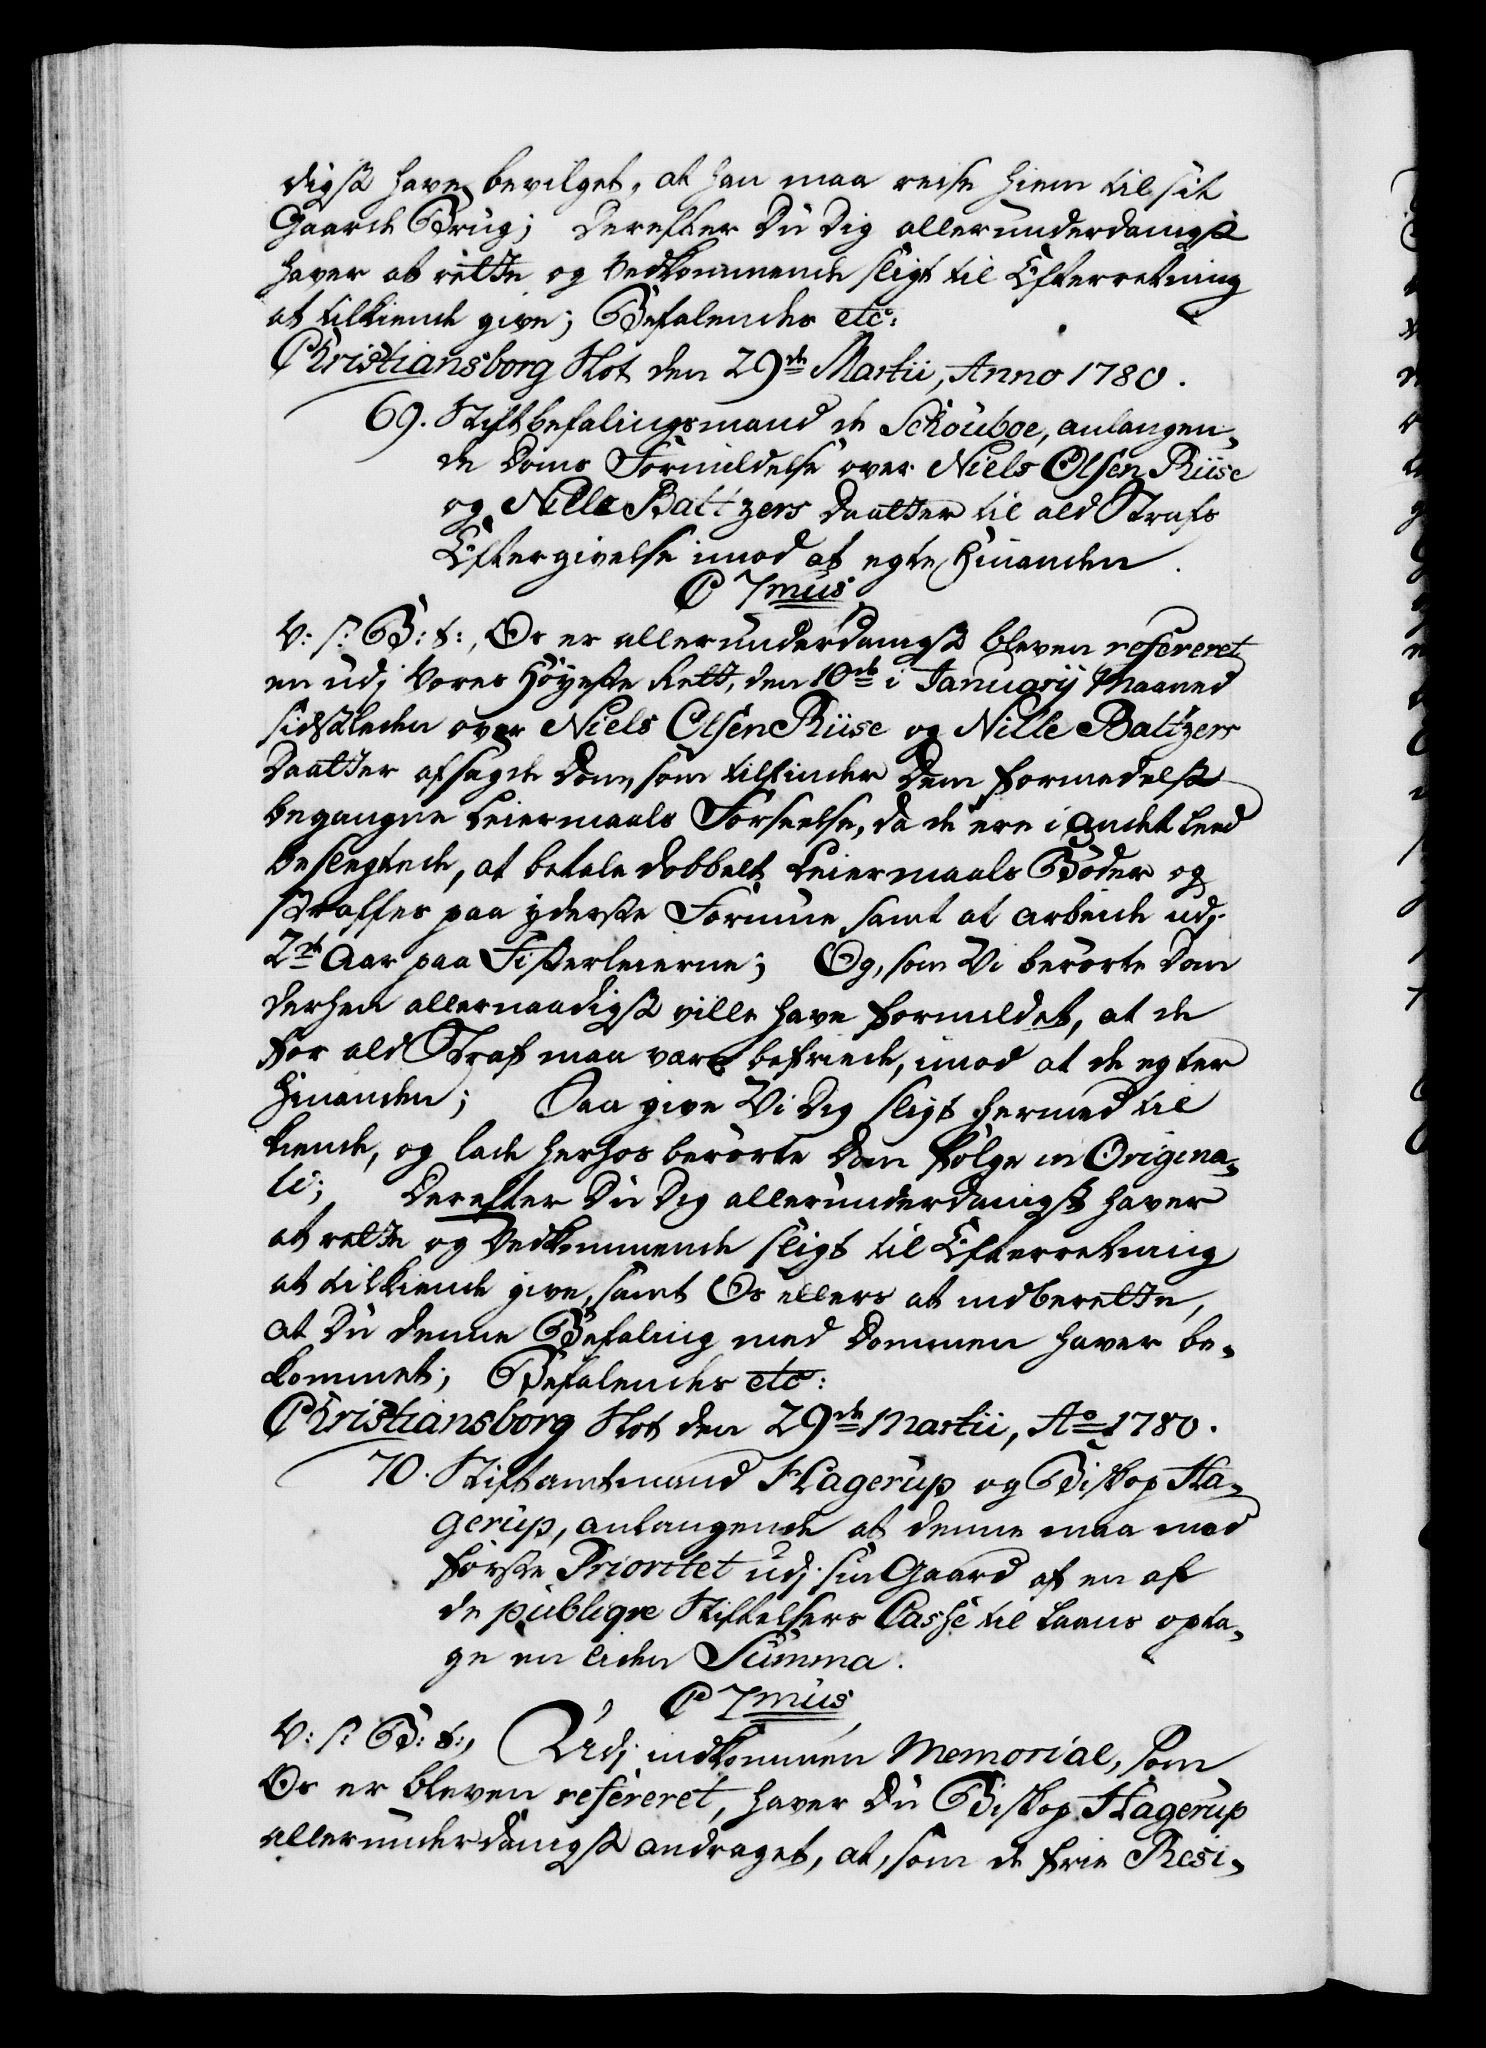 digst have bevilget, at han maa reise hiem til sit
Gaards Brug; Derefter Du Dig allerunderdanigst
haver at rette og Vedkommende sligt til Efterretning
at tilkiende give; Befalendes etc:
Christiansborg Slot den 29de Martii, Anno 1780.
69. Stiftbefalingsmand de Schouboe, anlangen-
de Doms Formildelse over Niels Olsen Riise
og Nille Baltzers Daatter til ald Strafs
Eftergivelse imod at egte hinanden.
C 7mus
V: S: G: T:, Os er allerunderdanigst bleven refereret
en udj Vores Höyeste Rett, den 10de i Januarij Maaned
sidstleden over Niels Olsen Riise og Nille Baltzers
Daatter afsagde Dom, som tilfinder Dem formedelst
begangne Leiermaals Forseelse, da de ere i andet Leed
beslegtede, at betale dobbelt Leiermaals Böder og
straffes paa yderste Formue samt at arbeide udj
2de Aar paa Fiskerleierne; Og, som Vi berörte Dom
derhen allernaadigst ville have formildet, at de
for ald Straf maa være befriede, imod at de egter
hinanden; Saa give Vi Dig sligt hermed til
kiende, og lade herhos berörte Dom fölge in Origina-
li; Derefter Du Dig allerunderdanigst haver
at rette og Vedkommende sligt til Efterretning
at tilkiende give, samt Os ellers at indberette,
at Du denne Befaling med Dommen haver be-
kommet; Befalendes etc:
Christiansborg Slot den 29de Martii, Ao 1780.
70. Stiftamtmand Hagerup og Biskop Ha-
gerup, anlangende at denne maa mod
förste Prioritet udj sin Gaard af en af
de publiqve Stiftelsers Casse til Laans opta-
ge en liden Summa.
C 7mus
V: S: G: T:, Udj indkommen Memorial, som
Os er bleven refereret, haver Du Biskop Hagerup
allerunderdanigst andraget, at, som de frie Resi-